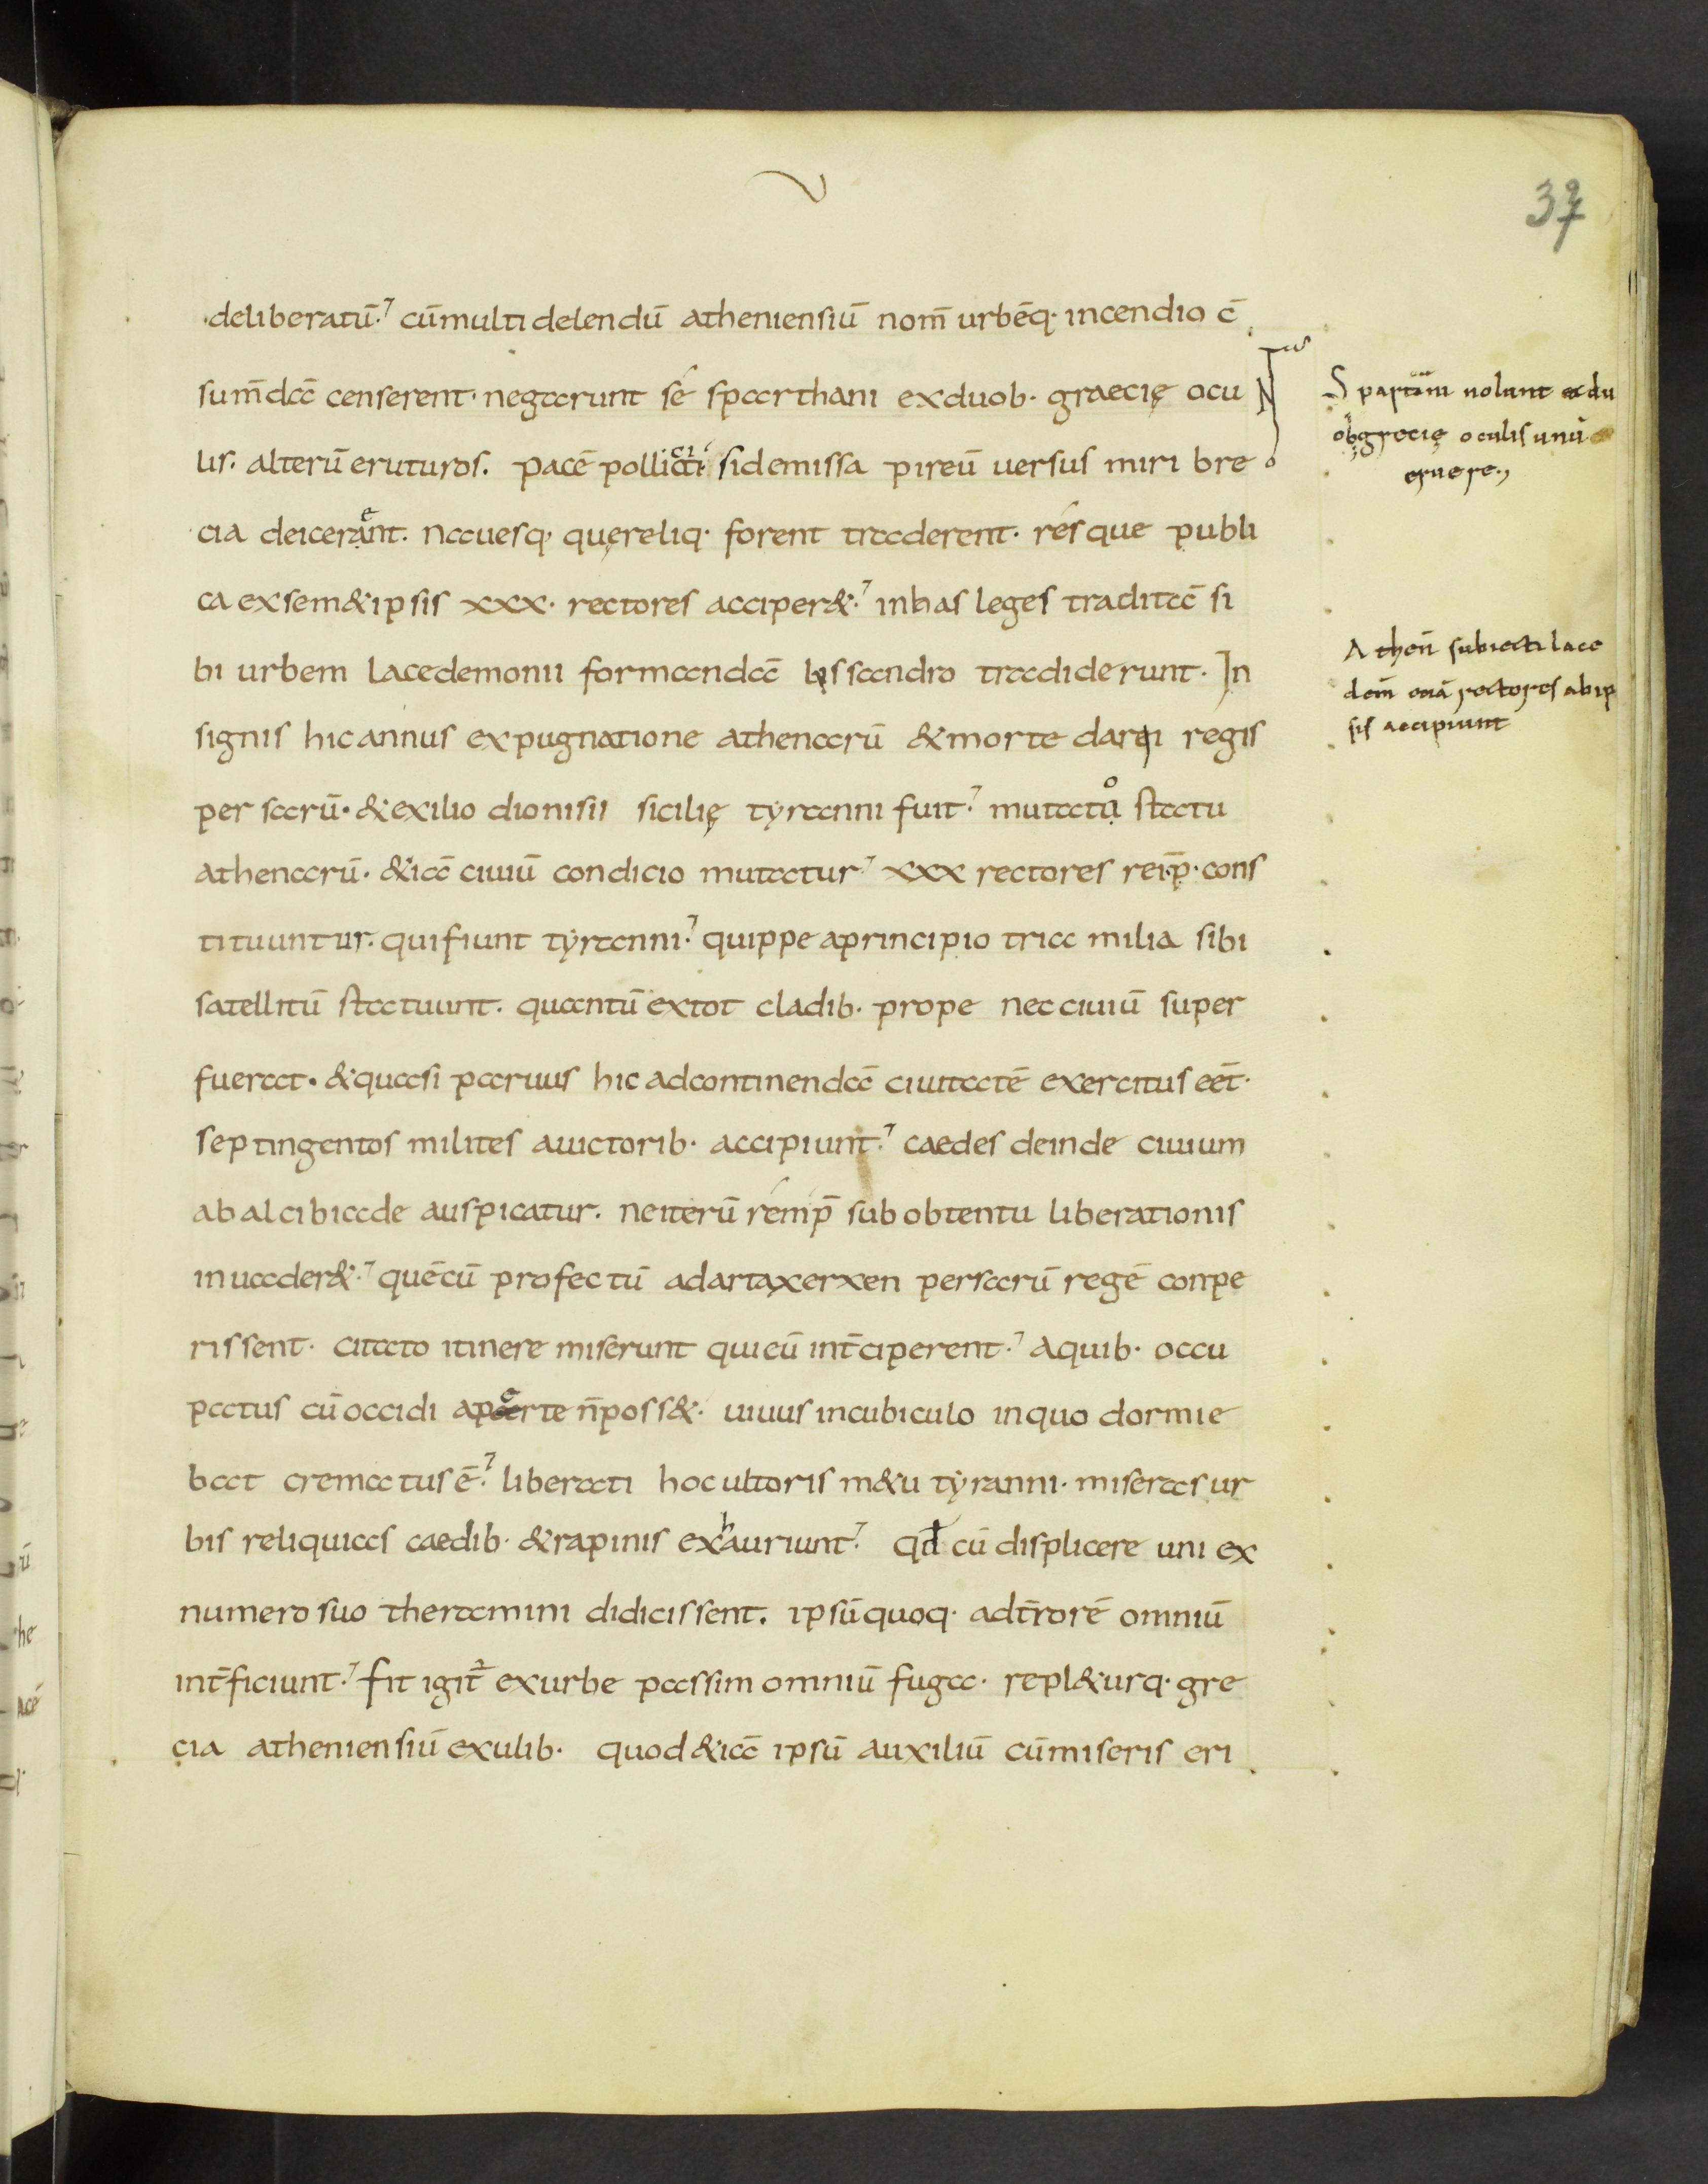 37
deliberatū. cūmulti delendū atheniensiū nom̄ urbēq· incendio c̄
sum̄dā censerent· negarunt sé sparthani exduob· graecię ocu
lis· alterū eruturos. pacē polliciti· sidemissa pireū uersus miri bre
cia deicerent. nauesq· quęreliq· forent traderent· résque publi
ca exsem&ipsis xxx· rectores acciper&· inhas leges traditā si
bi urbem lacedemonii formandā lissandro tradiderunt· In
signis hicannus expugnatione athenarū &morte darii regis
persarū· &exilio dionisii sicilię tyranni fuit· mutato statu
athenarū· &iā ciuiū condicio mutatur xxx rectores rei·p̄· cons
tituuntur· quifiunt tyranni· quippe aprincipio tria milia sibi
satellitū statuunt. quantū extot cladib· prope nec ciuiū super
fuerat· &quasi paruus hic adcontinendā ciuitatē exercitus eēt·
septingentos milites auictorib· accipiunt· caedes deinde ciuium
ab alcibiade auspicatur. neiterū remp̄ sub obtentu liberationis
inuader&· quēcū profectū adartaxerxen persarū regē conpe
rissent· citato itinere miserunt quieū int̄ciperent· Aquib· occu
patus cū occidi aperte n̄poss&· uiuus incubiculo inquo dormie
bat crematus ē· liberati hoc ultoris m&u tyranni· miseras ur
bis reliquias caedib· &rapinis exhauriunt· qđ cū displicere uni ex
numero suo theramini didicissent. ipsūquoq· adt̄rorē omniū
int̄ficiunt· fit igit̄ exurbe passim omniū fuga· repl&urq· gre
cia atheniensiū exulib· quod&iā ipsū auxiliū cūmiseris eri
Spartani nolunt exdu
ob grecię oculis unū
eruere.,
Athen̄ subiecti lace
dem̄ etiā rectores abip
sis accipiunt